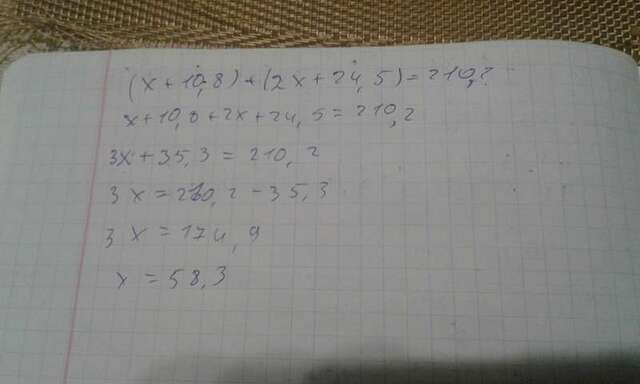 (x+10,8)+(2x+24,5)=210,2
x+10,8+2x+24,5=210,2
3x+35,3=210,2
3x=210,2-35,3
3x=174,9
x=58,3